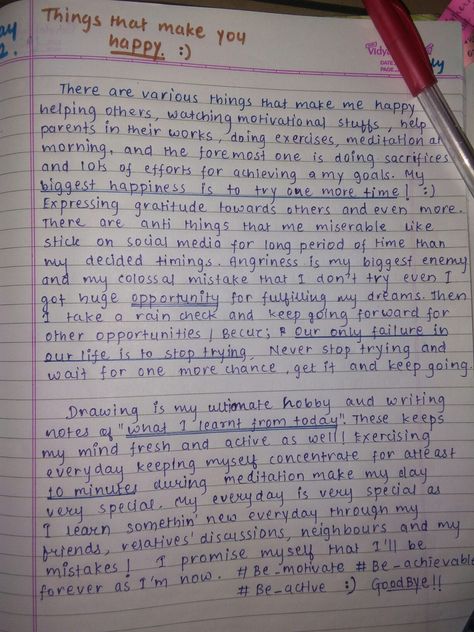 Things that make you
happy. :)
2.
Vidya
DATE
PAGE
There are various things that make me happy
helping others, watching motivational stuffs, help
parents in their works, doing exercises, meditation at
morning, and the foremost one is doing sacrifices
and lots of efforts for achieving a my goals. My
biggest happiness is to try one more time! :)
Expressing gratitude towards others and even more.
There are anti things that me miserable like
stick on social media for long period of time than
my decided timings. Angriness is my biggest enemy
and my colossal mistake that I don't try even I
got huge opportunity for fulfilling my dreams. Then
I take a rain check and keep going forward for
other opportunities! Becuz; Our only failure in
our life is to stop trying, Never stop trying and
wait for one more chance, get it and keep going.
Drawing is my ultimate hobby and writing
notes of "what I learnt from today". These keeps
my mind fresh and active as well! Exercising
everyday keeping myself concentrate for atleast
10 minutes during meditation make my day
very special. My everyday is very special as
I learn somethin' new everyday through my
friends, relatives' discussions, neighbours and my
mistakes! I promise myself that I'll be
forever as I'm now. #Be_motivate #Be_achievable
#Be_active :) GoodBye!!